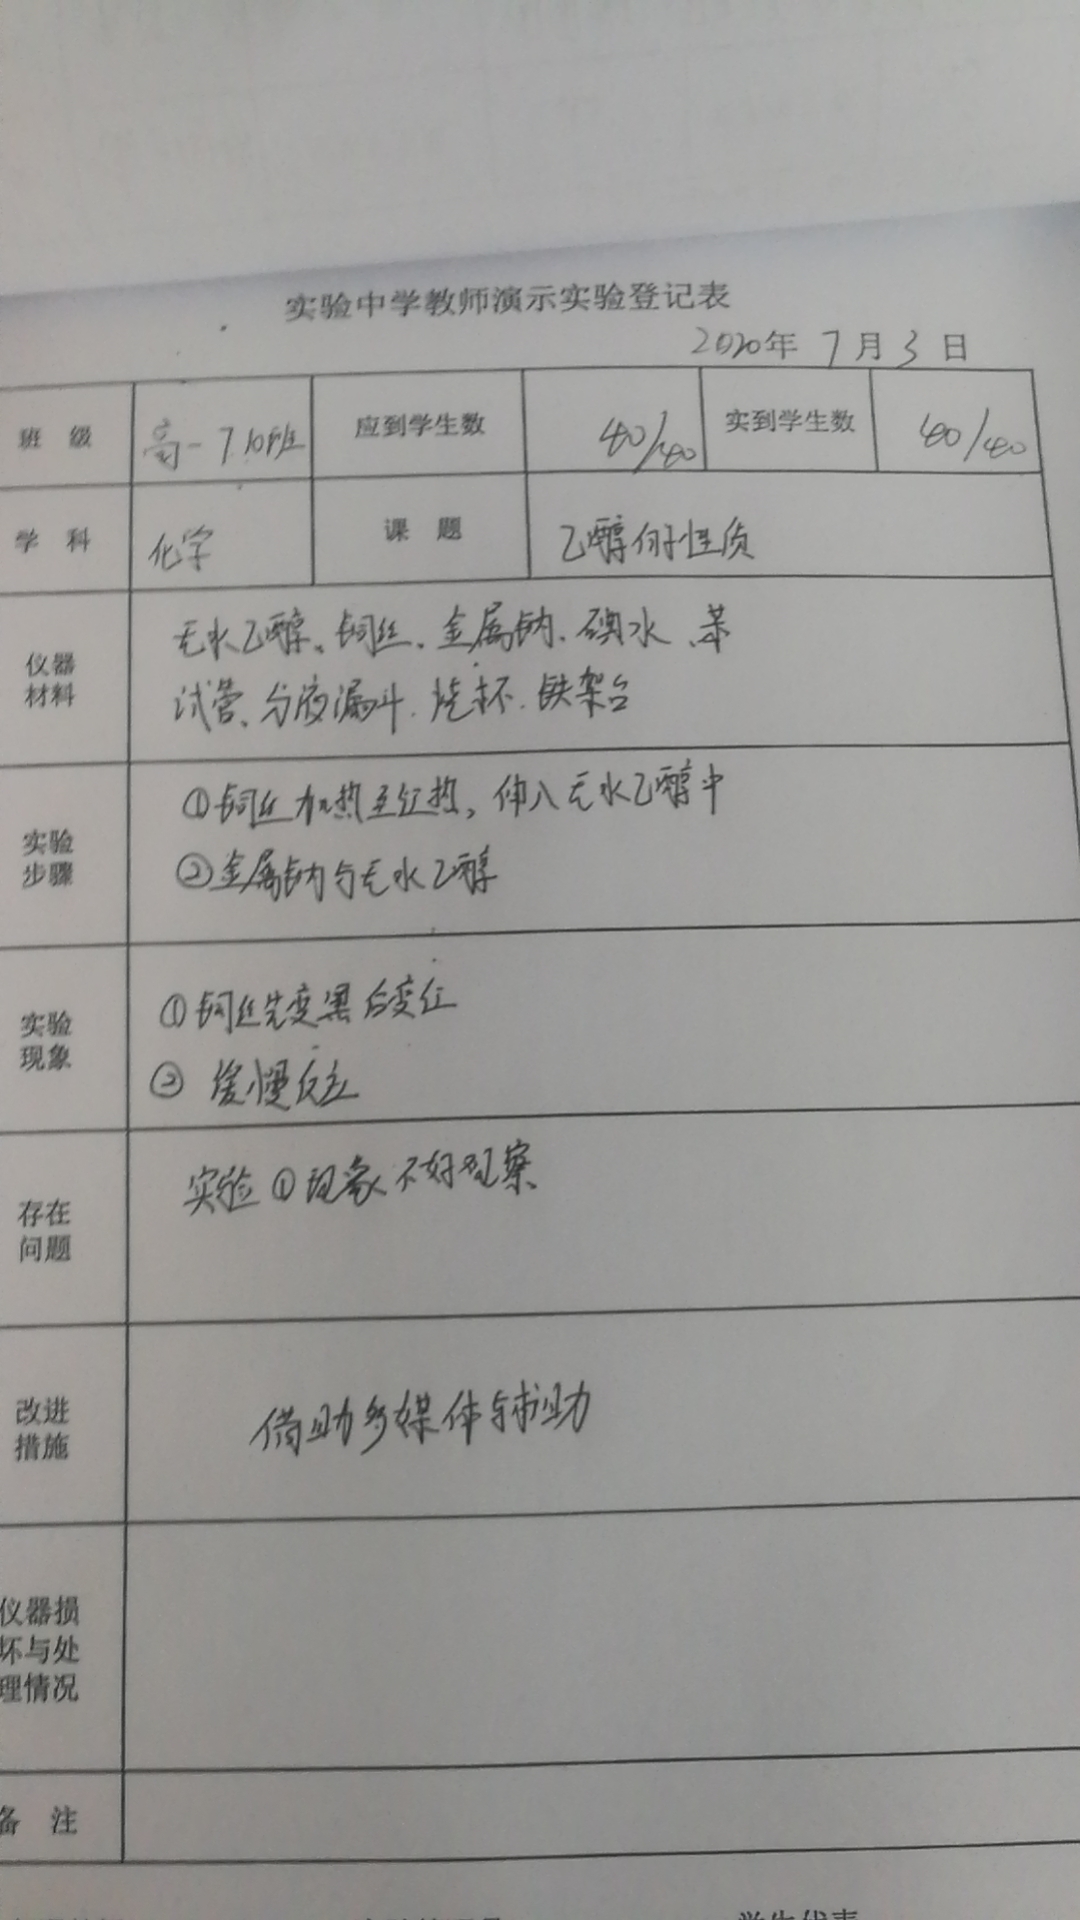 实验中学教师演示实验登记表
2020年 7月 3日
班 级 高一7.10班 应到学生数 40/40 实到学生数 40/40
学 科 化学 课 题 乙醇的性质
仪器
材料
无水乙醇、铜丝、金属钠、碘水、苯
试管、分液漏斗、烧杯、铁架台
实验
步骤
①铜丝加热至红热,伸入无水乙醇中
②金属钠与无水乙醇
实验
现象
①铜丝先变黑后变红
② 缓慢反应
存在
问题
实验①现象不好观察
改进
措施
借助多媒体辅助
仪器损
坏与处
理情况
备 注
学生代表